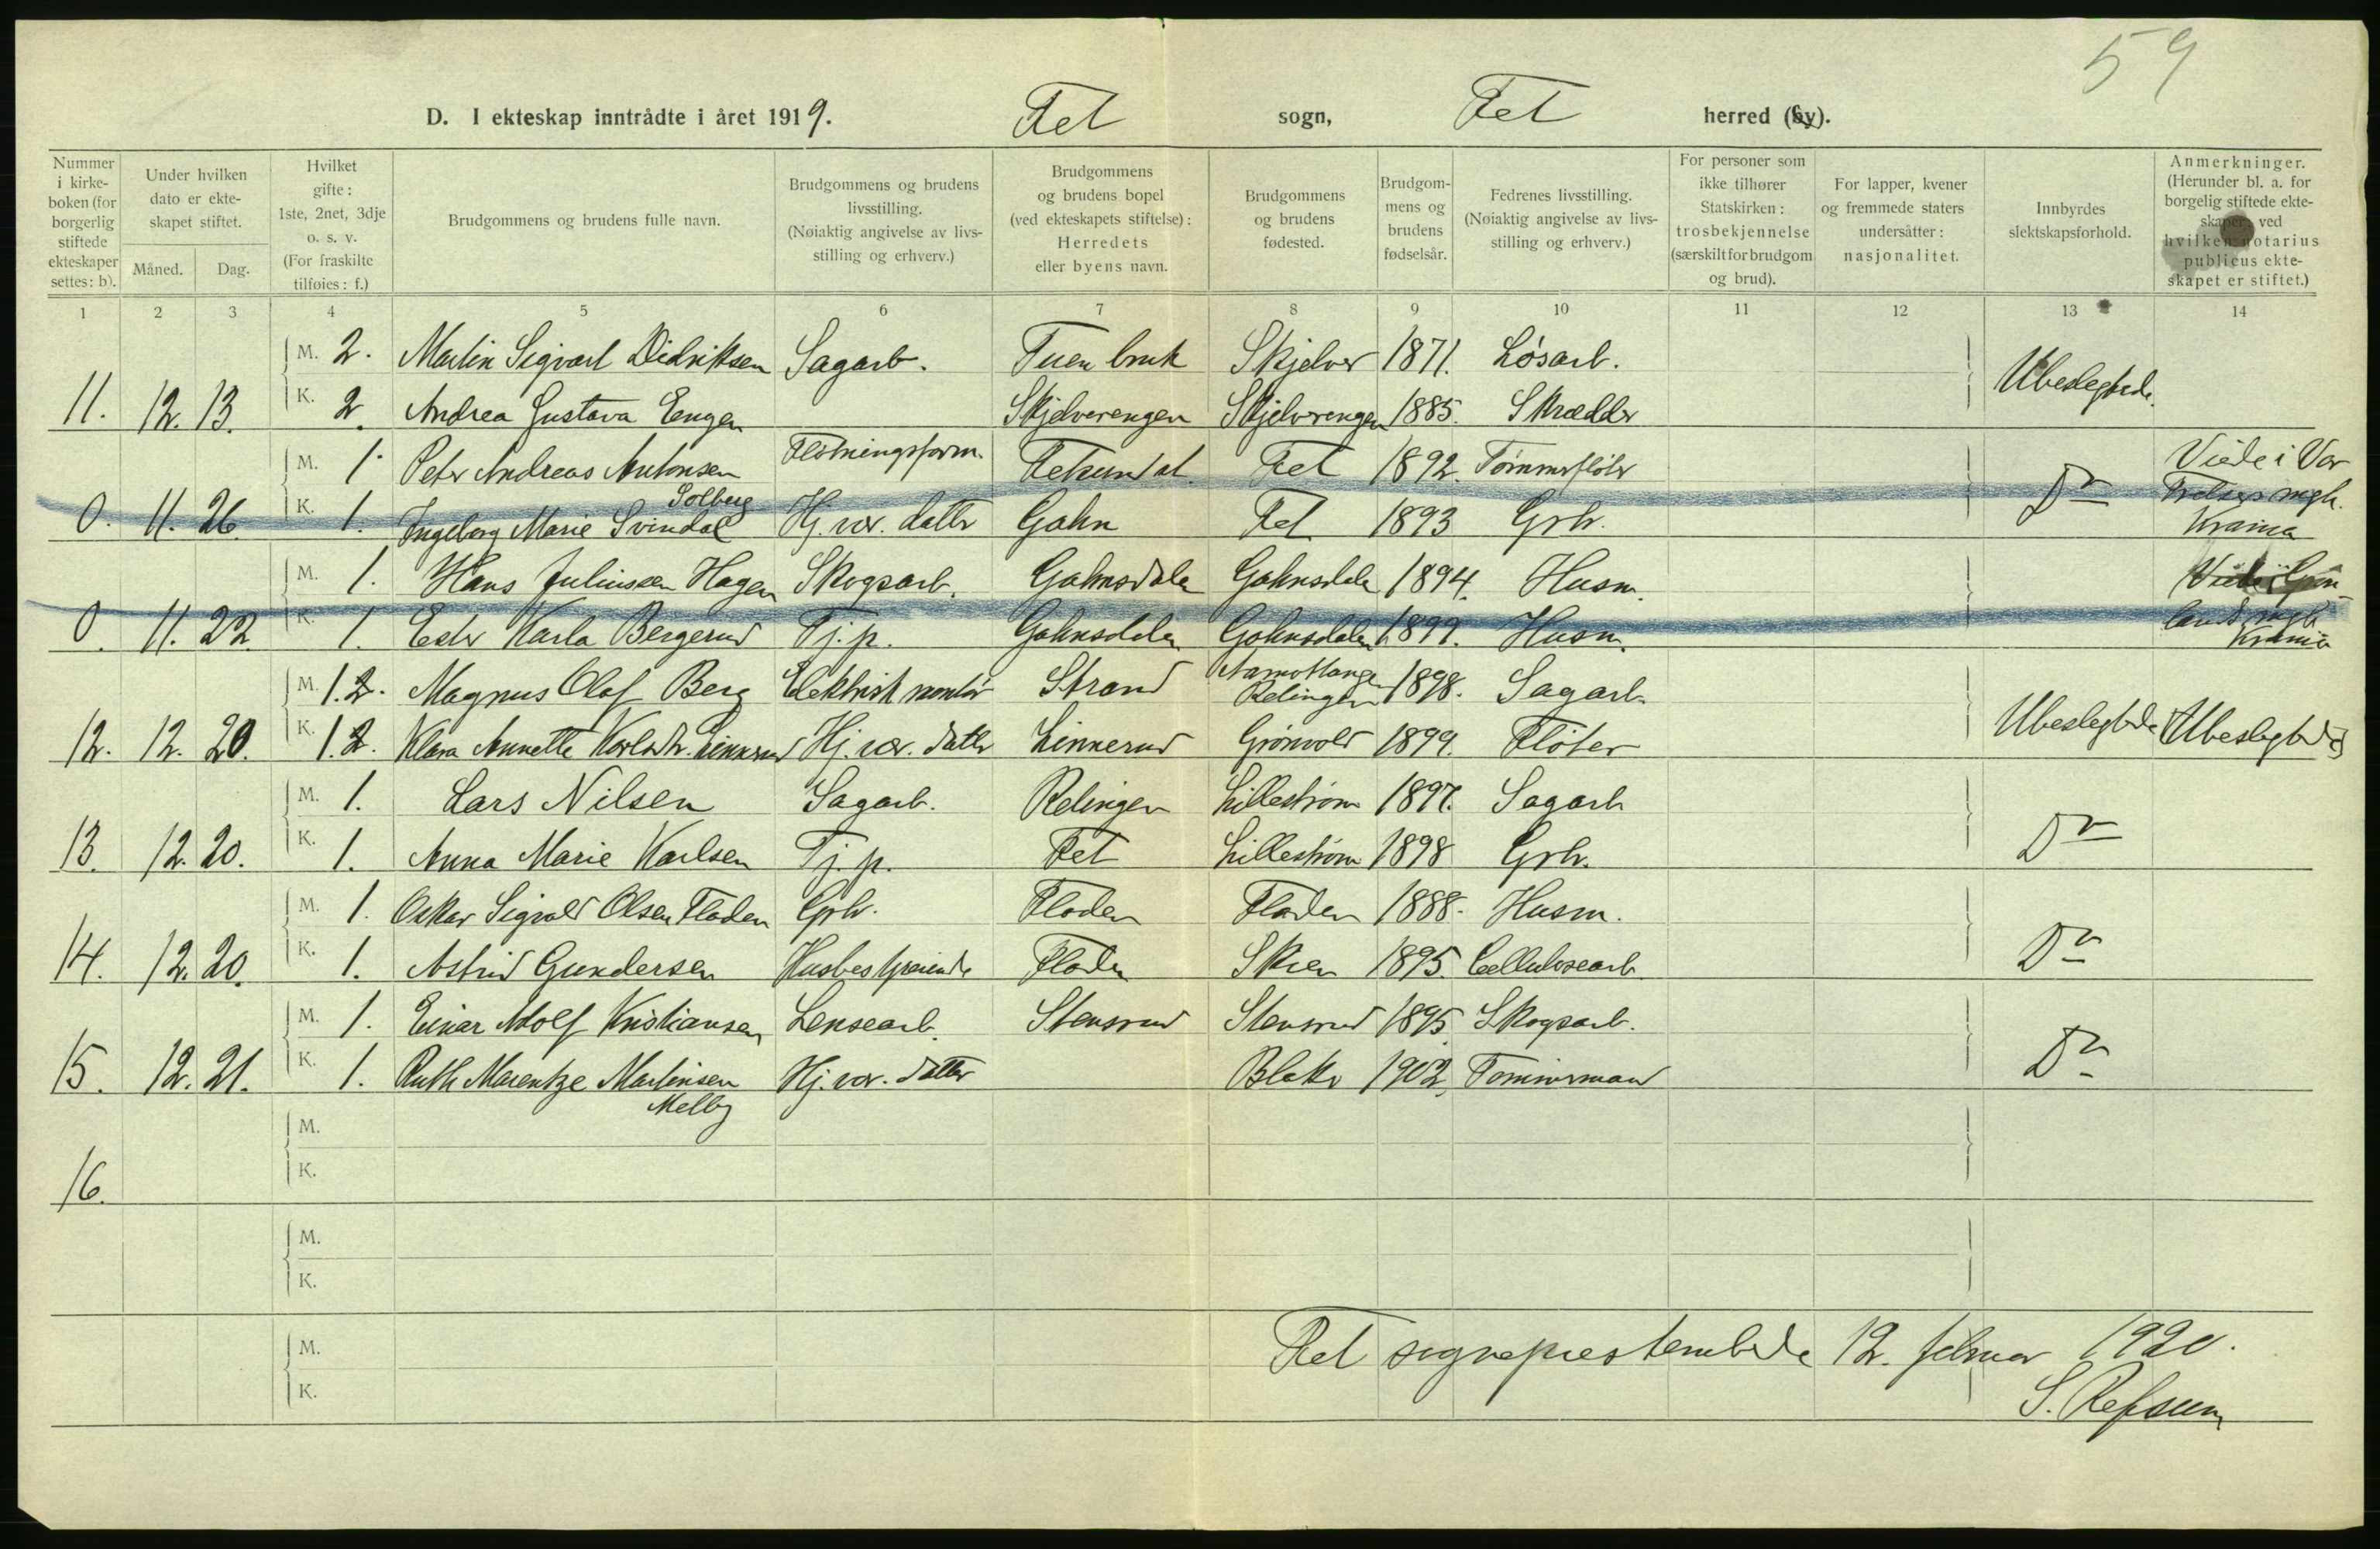 59
D. I ekteskap inntrådte i året 1919. Fet sogn, Fet herred (by).
Nummer i kirkeboken (for borgerlig stiftede ekteskaper settes: b).
Under hvilken dato er ekteskapet stiftet.
Måned. Dag.
Hvilket gifte: 1ste, 2net, 3dje o. s. v. (For fraskilte tilføies: f.)
Brudgommens og brudens fulle navn.
Brudgommens og brudens livsstilling. (Nøiaktig angivelse av livsstilling og erhverv.)
Brudgommens og brudens bopel (ved ekteskapets stiftelse): Herredets eller byens navn.
Brudgommens og brudens fødested.
Brudgommens og brudens fødselsår.
Fedrenes livsstilling. (Nøiaktig angivelse av livsstilling og erhverv.)
For personer som ikke tilhører Statskirken: trosbekjennelse (særskilt for brudgom og brud).
For lapper, kvener og fremmede staters undersåtter: nasjonalitet.
Innbyrdes slektskapsforhold.
Anmerkninger. (Herunder bl. a. for borgelig stiftede ekteskaper: ved hvilken notarius publicus ekteskapet er stiftet.)
1 2 3 4 5 6 7 8 9 10 11 12 13 14
M. 2. Martin Sigvart Didriksen Sagarb. Tuen bruk Skjelver 1871. Løsarb.
11. 12. 13. K. 2. Andrea Gustava Engen Skjelverengen Skjelverengen 1885. Skrædder Ubeslegtede.
M. 1. Peter Andreas Antonsen Fløtningsform. Fetsund st. Fet 1892. Tømmerfløter Viede i Vor
Solberg
0. 11. 26. K. 1. Ingeborg Marie Svindal Hj. vær. datter Gahn Fet 1893 Grbr. Do Frelsers mgh. Krania
M. 1. Hans Juliussen Hagen Skogsarb. Gahnsdale Gahnsdale 1894. Husm. Viede i Grøn-
0. 11. 22. K. 1. Ester Karla Bergerud Tj. p. Gahnsdalen Gahnsdalen 1899. Husm. lands mgh Krania
M. 1. 2. Magnus Olaf Berg Elektrisk montør Strand Aamotlangen Relingen 1898. Sagarb.
12. 12. 20. K. 1. 2. Klara Annette Karlsdtr. Linnerud Hj. vær. datter Linnerud Grønvold 1899. Fløter Ubeslegtede (Ubeslegtede)
M. 1. Lars Nilsen Sagarb. Relingen Lillestrøm 1897. Sagarb
13. 12. 20. K. 1. Anna Marie Karlsen Tj. p. Fet Lillestrøm 1898 Grbr. Do
M. 1. Oskar Sigvald Olsen Fladen Grbr. Fladen Fladen 1888. Husm.
14. 12. 20. K. 1. Astrid Gundersen Husbestyrerinde Fladen Skien 1895. Cellulosearb. Do
M. 1. Einar Adolf Kristiansen Lensearb. Stensrud Stensrud 1895. Skogsarb.
15. 12. 21. K. 1. Ruth Marentze Martinsen Hj. vær. datter Blaker 1902. Tømmermand Do
Melby
M.
16. K.
M.
K.
M.
Fet sogneprestembede 12. februar 1920.
K.
S. Refsum